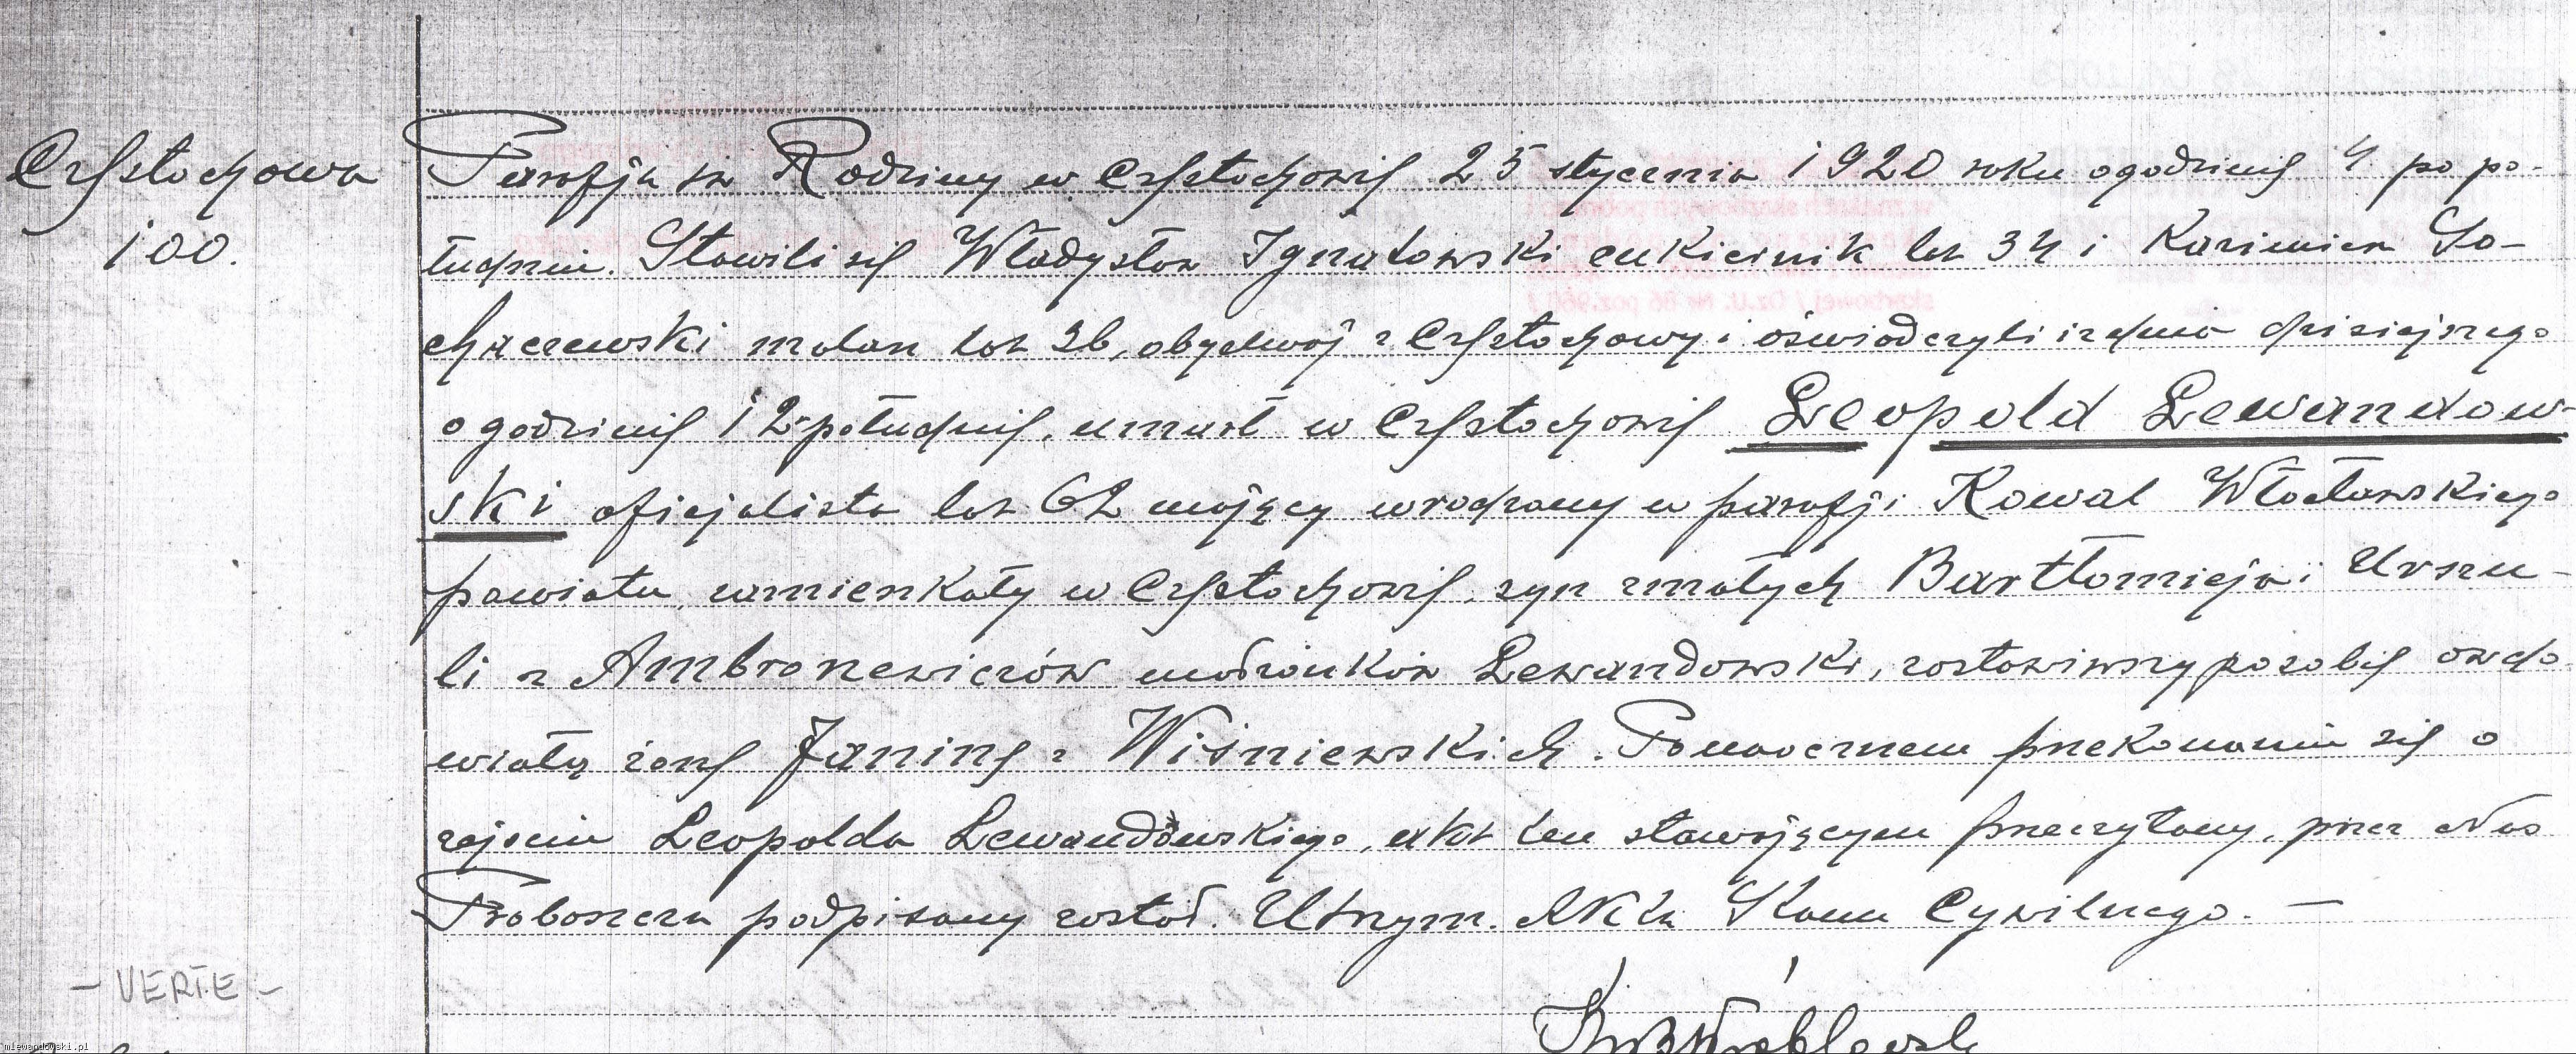 Częstochowa
100.
Parafja św Rodziny w Częstochowie 25 stycznia 1920 roku o godzinie 4 po po-
łudniu. Stawili się Władysław Ignatowski cukiernik lat 34 i Kazimierz So-
chaczewski malarz lat 36, obydwaj z Częstochowy i oświadczyli iż dnia dzisiejszego
o godzinie 12 w południe, umarł w Częstochowie Leopold Lewandow-
ski oficjalista lat 62 mający urodzony w parafji Kowal Włocławskiego
powiatu, zamieszkały w Częstochowie, syn zmarłych Bartłomieja i Urszu-
li z Ambroszewiczów małżonków Lewandowski, zostawiwszy po sobie owdo-
wiałą żonę Janinę z Wiśniewskich. Po naocznem przekonaniu się o
zejściu Leopolda Lewandowskiego, akt ten stawającym przeczytany, przez Nas
Proboszcza podpisany został. Utrzym. Akta Stanu Cywilnego. —
- VERTE -
Ks Wróblewski
mlewandowski.pl